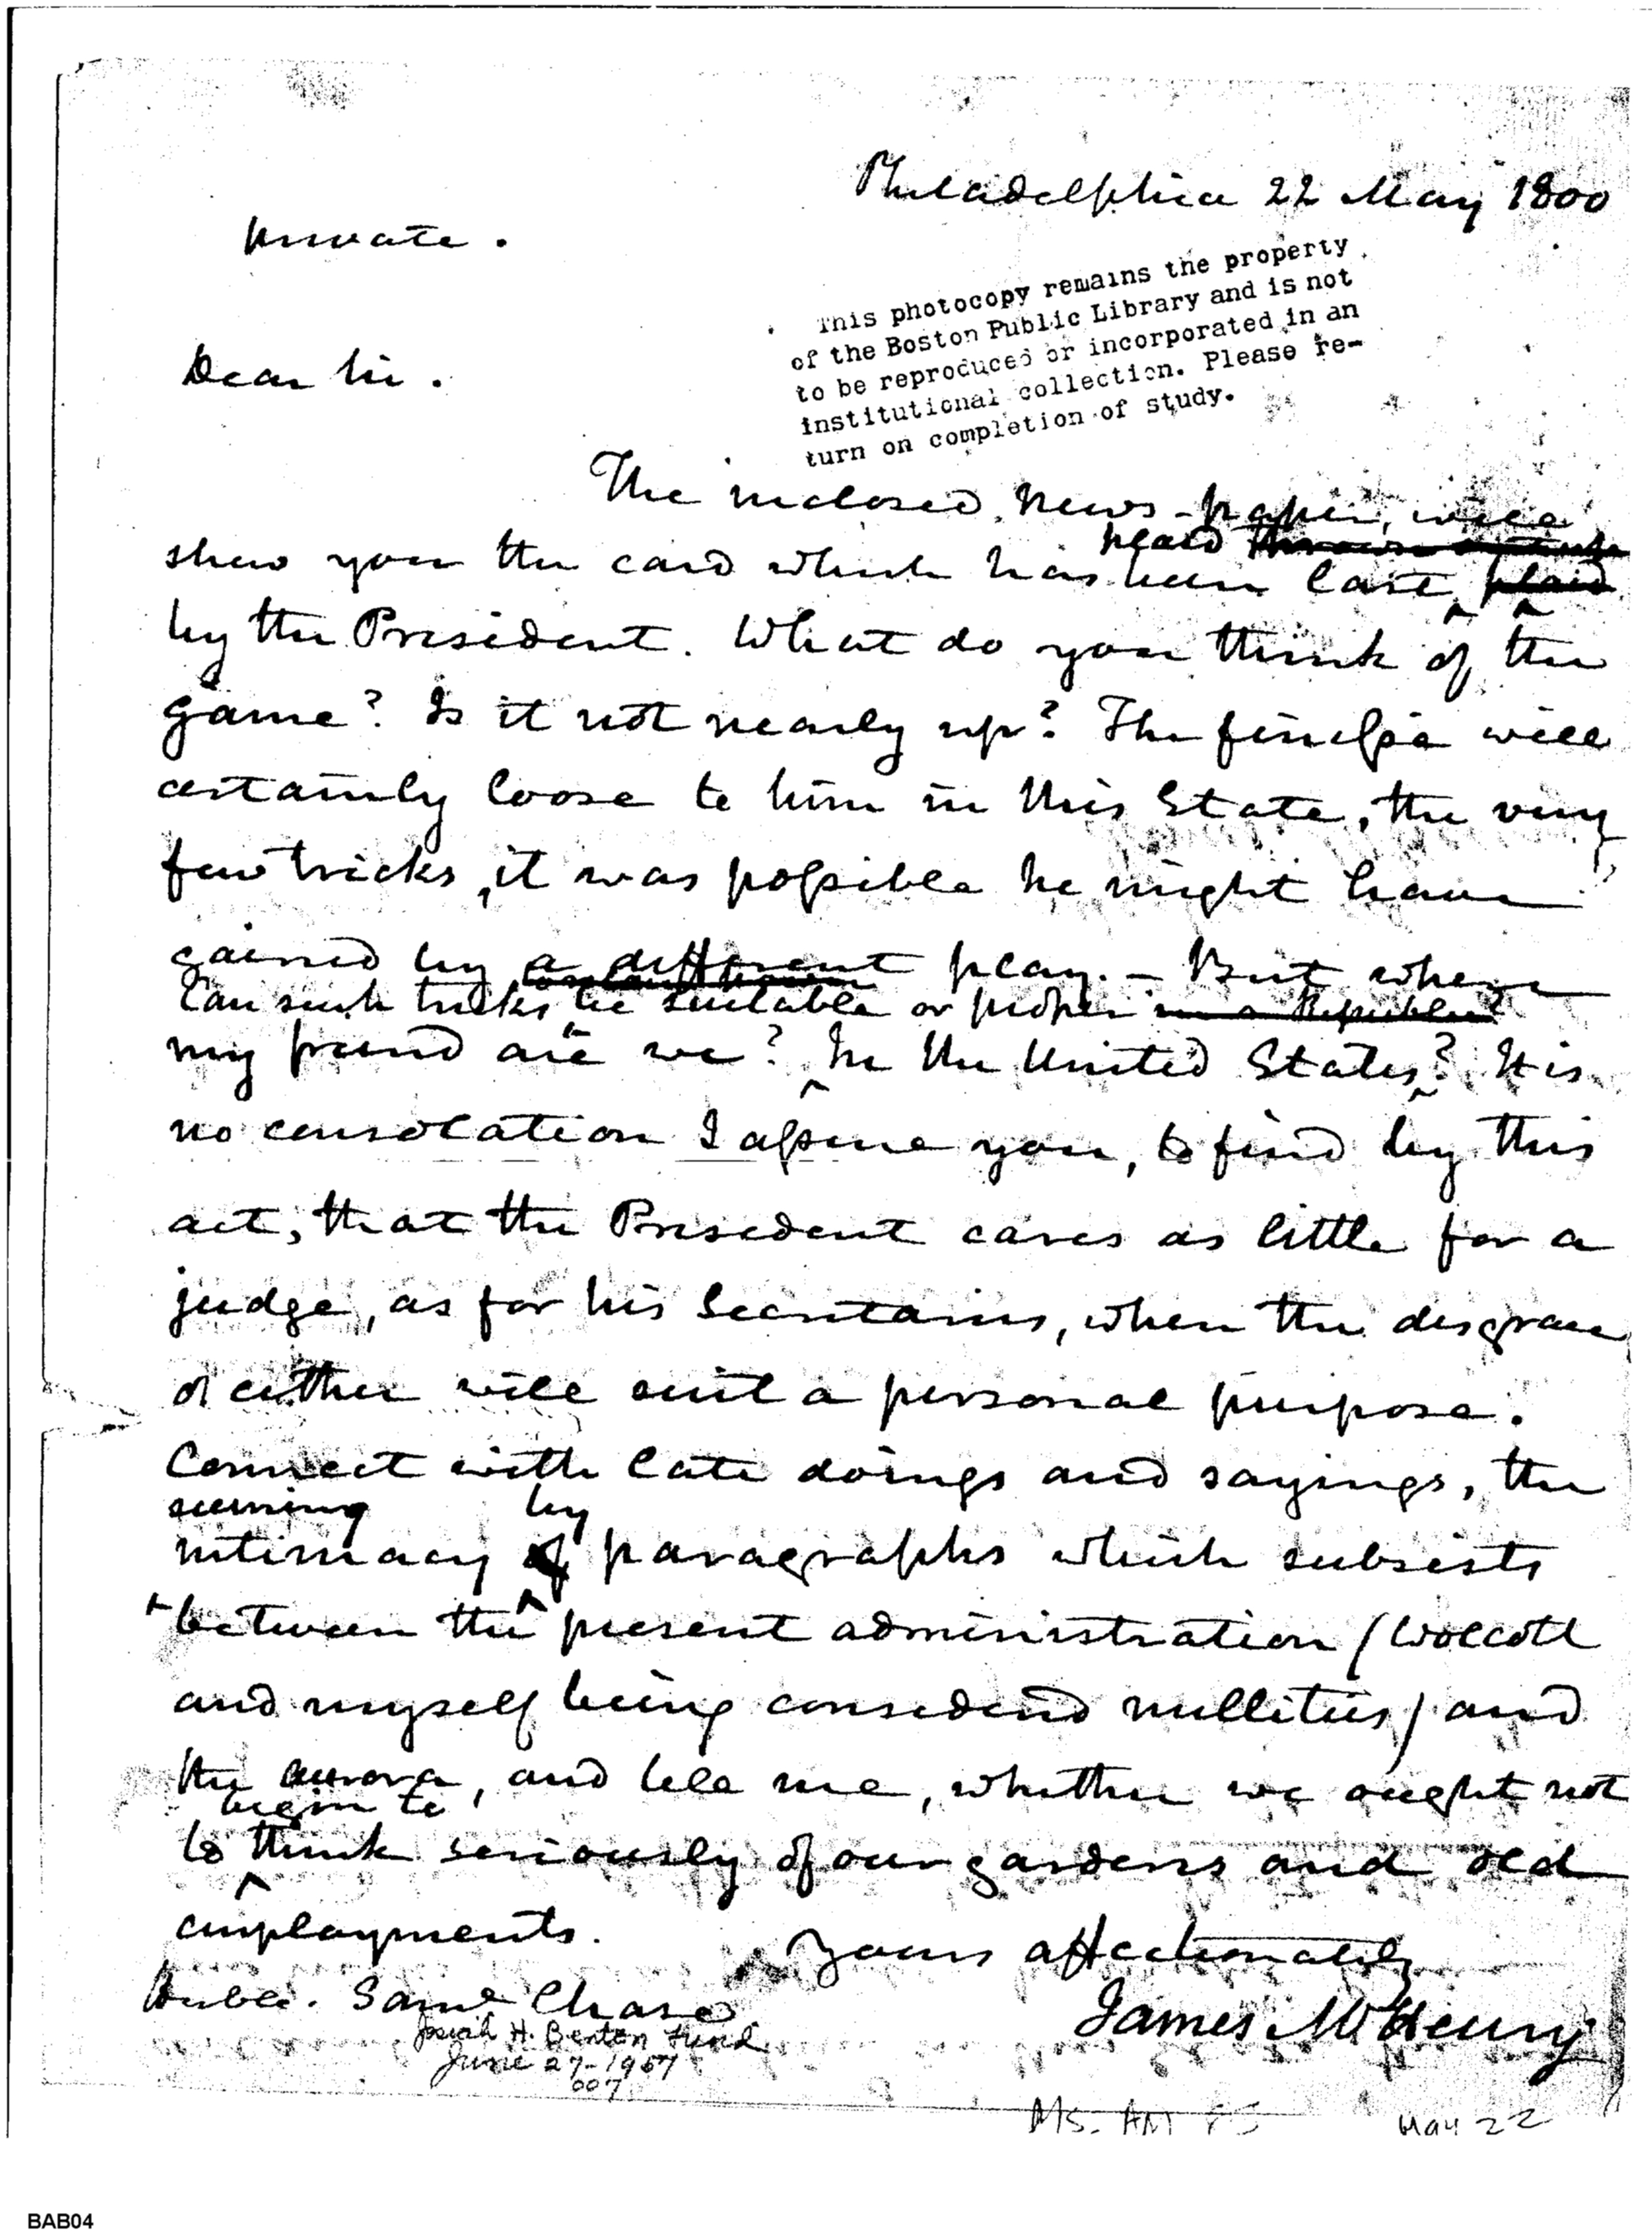 Philadelphia 22 May 1800
private.
This photocopy remains the property
of the Boston Public Library and is not
to be reproduced or incorporated in an
institutional collection. Please re-
turn on completion of study.
Dear Sir.
The inclosed news-paper, will
heard
shew you the card which has been last plaid
by the President. What do you think of the
game? Is it not nearly up? The finesse will
certainly loose to him in this State, the very
few tricks, it was possible he might have
gained by a different play. - But where
Can such tricks be suitable or proper in a Republic
my friend are we? In the United States? It is
no consolation I assure you, to find by this
act, that the President cares as little for a
judge, as for his Secretaries, when the disgrace
of either will suit a personal purpose.
Connect with late doings and sayings, the
seeming by
intimacy of paragraphs which subsists
between the present administration (Wolcott
and myself being considered nullities) and
the aurora, and tell me, whether we ought not
begin to
to think seriously of our gardens and old
employments.
Yours affectionately
James McHenry
Honble. Saml Chase
Josiah H. Benton Fund
June 27-1957
007
Ms. Am
May 22
BAB04